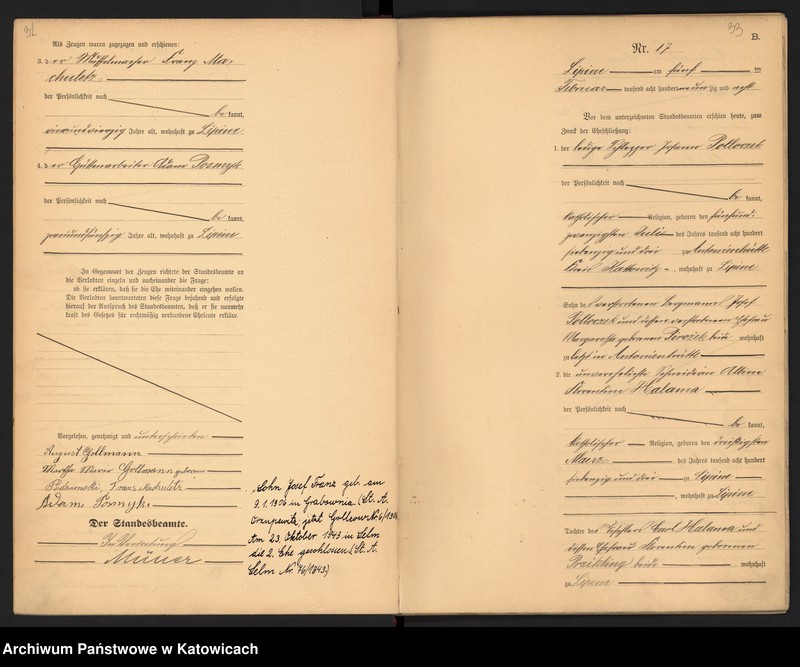 32
Als Zeugen waren zugezogen und erschienen:
3. der Franz Ma-
chuletz
der Persönlichkeit nach
be kannt,
vierundvierzig Jahre alt, wohnhaft zu Lipine
4. der Hüttenarbeiter Adam Posmyk
der Persönlichkeit nach
be kannt,
zweiundfünfzig Jahre alt, wohnhaft zu Lipine
In Gegenwart der Zeugen richtete der Standesbeamte an
die Verlobten einzeln und nacheinander die Frage:
ob sie erklären, daß sie die Ehe miteinander eingehen wollen.
Die Verlobten beantworteten diese Frage bejahend und erfolgte
hierauf der Ausspruch des Standesbeamten, daß er sie nunmehr
kraft des Gesetzes für rechtmäßig verbundene Eheleute erkläre.
Vorgelesen, genehmigt und unterschrieben
August Gollmann
Martha Marie Gollmann geborene
Franz Machuletz
Adam Posmyk
Der Standesbeamte.
In Vertretung
Müller
Sohn Josef Franz geb. am
9.1.1926 in Grabownia. (St. A.
jetzt Nr. 6/1926
Am 23. Oktober 1943 in Selm
die 2. Ehe geschlossen. (St. A.
Selm Nr. 76/1943.)
33
B.
Nr. 17
Lipine am fünf ten
Februar tausend acht hundert neunzig und acht
Vor dem unterzeichneten Standesbeamten erschien heute, zum
Zweck der Eheschließung:
1. der ledige Schlepper Johann Polloczek
der Persönlichkeit nach
be kannt,
katholischer Religion, geboren den fünfund-
zwanzigsten des Jahres tausend acht hundert
siebenzig und drei zu Antonienhütte
Kreis Kattowitz, wohnhaft zu Lipine
Sohn des verstorbenen Bergmanns Josef
Polloczek und dessen verstorbenen Ehefrau
Margarethe geborenen beide wohnhaft
zu letzt in Antonienhütte
2. die unverehelichte Schneiderin Albine
Florentine Halama
der Persönlichkeit nach
be kannt,
katholischer Religion, geboren den dreißigsten
März des Jahres tausend acht hundert
siebenzig und drei zu Lipine
, wohnhaft zu Lipine
Tochter des Carl Halama und
dessen Ehefrau Florentine geborenen
beide wohnhaft
zu Lipine
Archiwum Państwowe w Katowicach